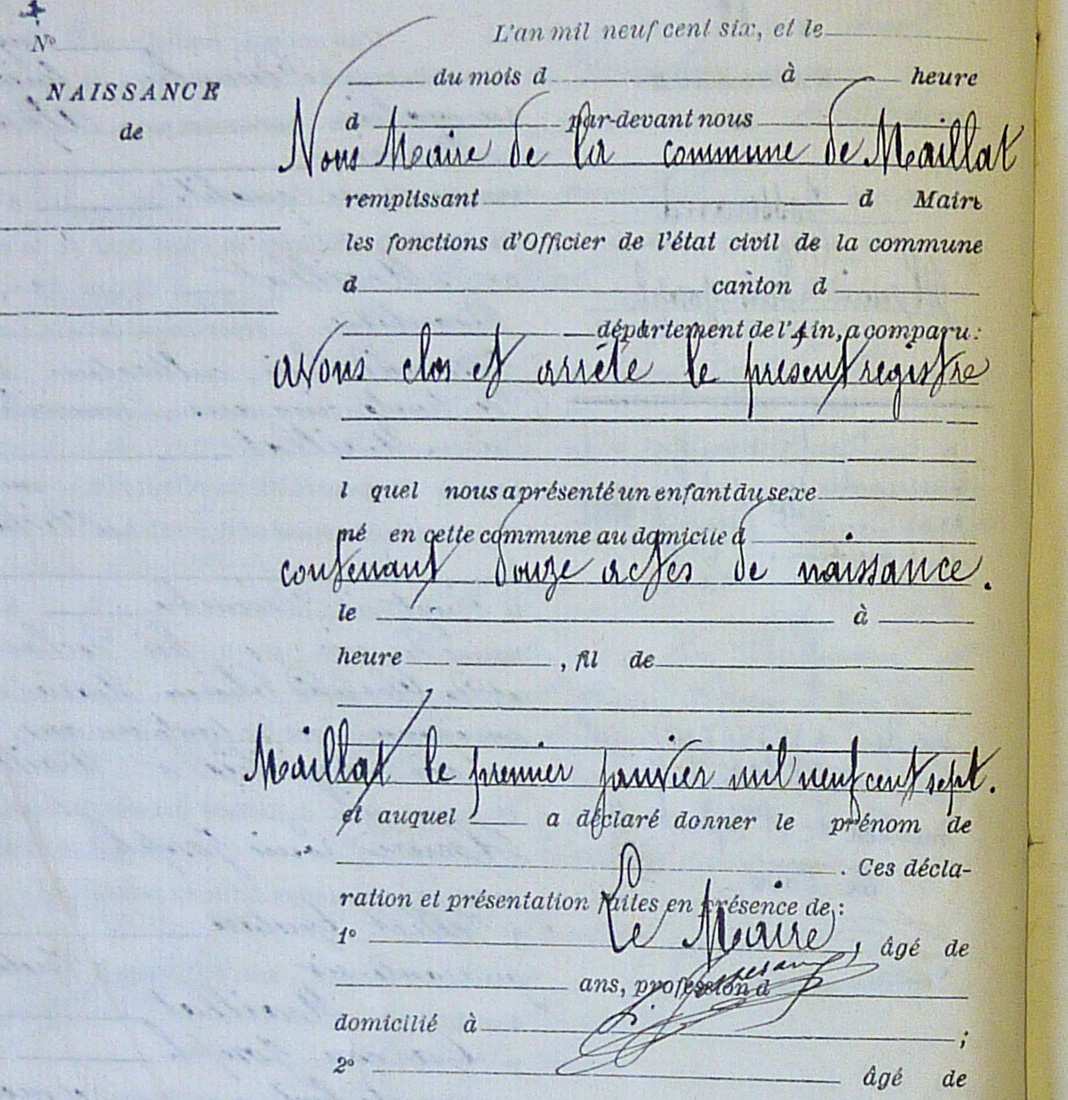 Nº
NAISSANCE
de
L'an mil neuf cent six, et le
du mois d à heure
d par-devant nous
Nous Maire de la commune de Maillat
remplissant d Maire
les fonctions d'Officier de l'état civil de la commune
d canton d
département de l'Ain, a comparu:
avons clos et arrêté le présent registre
l quel nous a présenté un enfant du sexe
né en cette commune au domicile d
contenant douze actes de naissance.
le à
heure , fil de
Maillat le premier janvier mil neuf cent sept.
et auquel a déclaré donner le prénom de
. Ces décla-
ration et présentation faites en présence de:
Le Maire
1º , âgé de
ans, profession d
domicilié à ;
2º âgé de